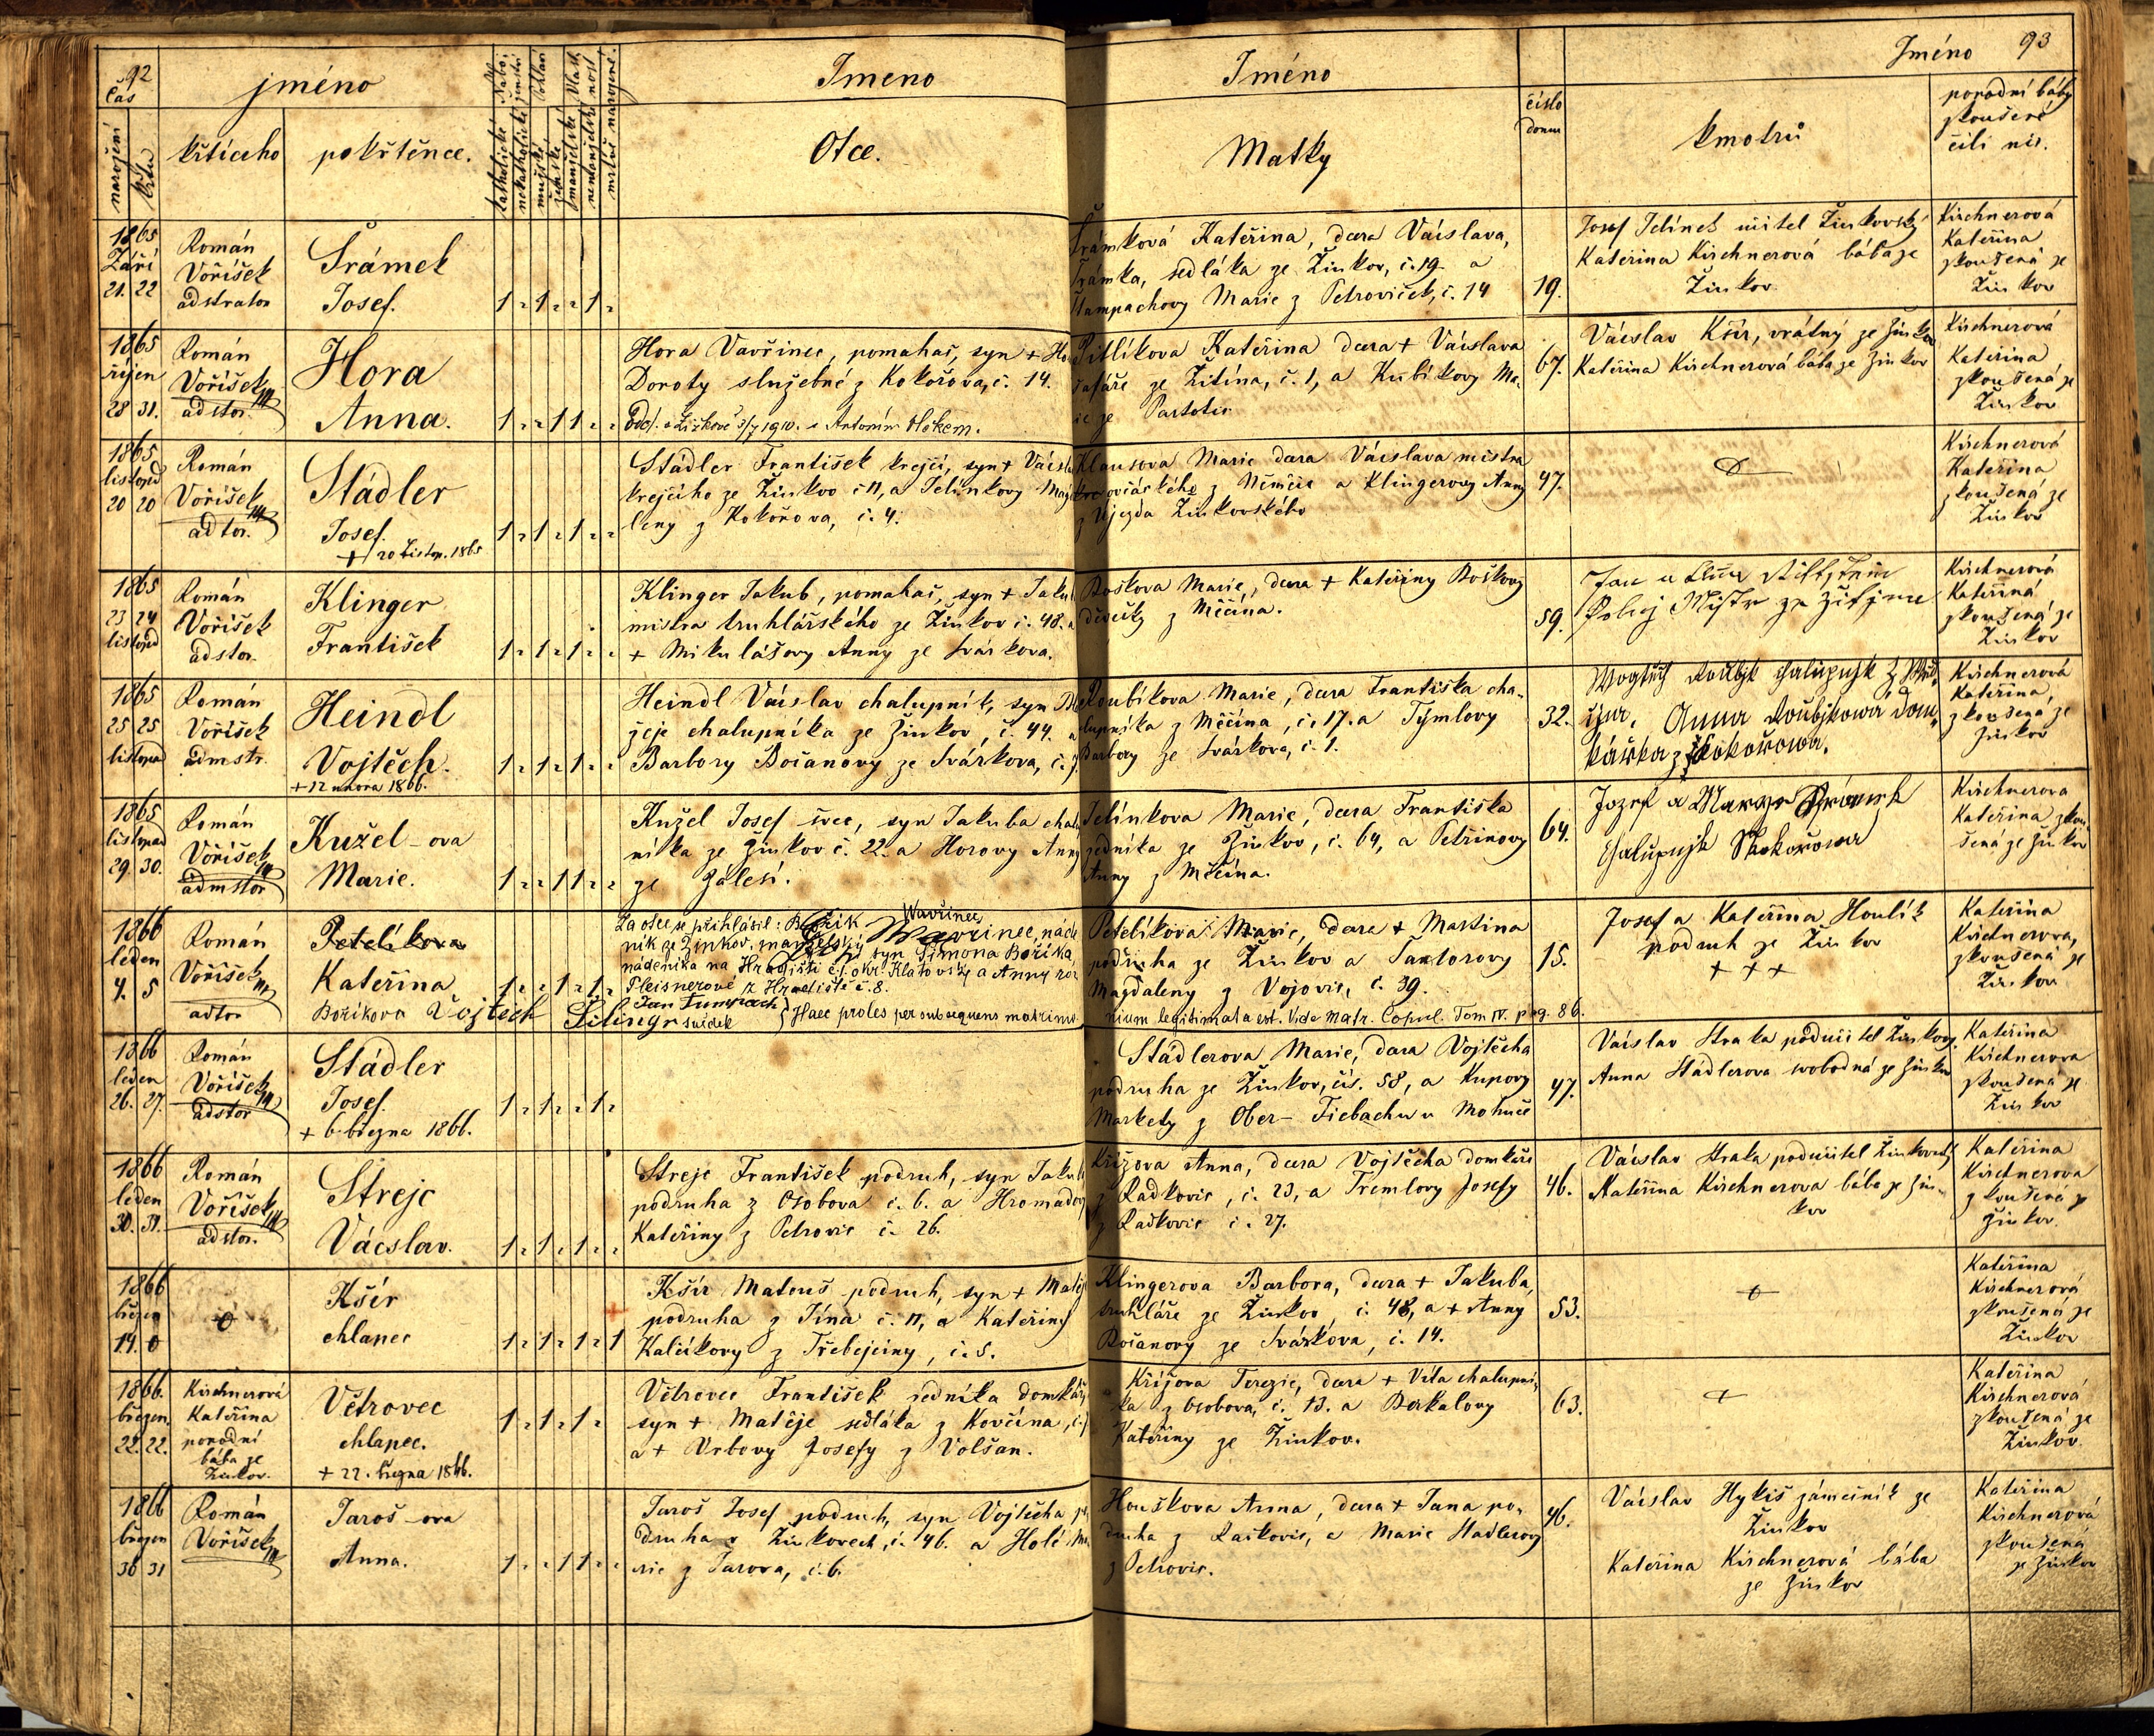 92
čas
narození
křtu
jméno
křtícího
pokřtěnce.
katholické
nekatholické
mužské
ženské
manželské
nemanželské
mrtvě narozené.
Jmeno
Otce.
Jméno
Matky
číslo
domu
Jméno 93
kmotrů
porodní báby
zkoušené
čili nic.
1865
Září
21. 22
Román
Voříšek
adstrator
Šrámek
Josef.
Šrámková Kateřina, dcera Václava,
Šrámka, sedláka ze Žinkov, č. 19. a
Marie z Petroviček, č. 14
19.
Josef Jelínek učitel Žinkovský
Kateřina Kirchnerová bába ze
Žinkov
Kirchnerová
Kateřina
zkoušená ze
Žinkov
1865
říjen
28 31.
Román
Voříšek
adstor.
Hora
Anna.
Hora Vavřinec, pomahač, syn +
Doroty služebné z Kokořova, č. 14.
Odd. v Žižkově 3/7 1910. s Antonínem Hokem.
Pitlíkova Kateřina dcera + Václava
šafáře ze Žitína, č. 1, a Kubíkovy Ma-
rie ze
67.
Václav Kšír, vrátný ze Žinkov
Kateřina Kirchnerová bába ze Žinkov
Kirchnerová
Kateřina
zkoušená ze
Žinkov
1865
listopad
20 20
Román
Voříšek
adtor.
Städler
Josef.
+ 20 Listop. 1865
Städler František krejčí, syn + Václava
krejčího ze Žinkov č 11, a Jelínkovy Magda
leny z Kokořova, č. 4.
Klausova Marie dcera Václava mistra
ovčáckého z Němčic a Klingerovy Anny
z Újezda Žinkovského
47.
Kirchnerová
Kateřina
zkoušená ze
Žinkov
1865
23 24
listopad
Román
Voříšek
adstor.
Klinger
František
Klinger Jakub, pomahač, syn + Jakuba
mistra truhlářského ze Žinkov č. 48. a
+ Mikulášovy Anny ze Svárkova.
Boškova Marie, dcera + Kateřiny Boškovy
děvečky z Měčína.
59.
Kirchnerová
Kateřina
zkoušená ze
Žinkov
1865
25 25
listopad
Román
Voříšek
admstr.
Heindl
Vojtěch.
+ 12 února 1866.
Heindl Václav chalupník, syn
jeje chalupníka ze Žinkov, č. 44. a
Barbory Bočanovy ze Svárkova, č.
Roubíkova Marie, dcera Františka cha-
lupníka z Měčína, č. 17. a Tymlovy
Barbory ze Svárkova, č. 1.
32.
Anna Roubjkowa dom
kářka z Kokořowa.
Kirchnerová
Kateřina,
zkoušená ze
Žinkov
1865
listopad
29. 30.
Román
Voříšek
admstor
Kužel-ova
Marie.
Kužel Josef švec, syn Jakuba chalup
níka ze Žinkov č. 22. a Horovy Anny
ze Zálesí.
Jelínkova Marie, dcera Františka
sedníka ze Žinkov, č. 64, a Petrinovy
Anny z Měčína.
64.
Kirchnerova
Kateřina zkou
šená ze Žinkov
1866
leden
4. 5
Román
Voříšek
adtor
Petelíkova
Kateřina
Božíkova Vojtěch
Za otce se přihlásil: Božík Wawřinec, náde
Wavřinec
ník ze Žinkov, manželský syn Šimona Božíka,
nádeníka na Hradišti č. 1. okr. Klatovský a Anny roz
Pleisnerové z Hradiště č. 8.
svědek
Haec proles per subsequens matrimo
nium legitimata est. Vide Matr. Copul. Tom IV. pag. 86.
Petelíkova Marie, dcera + Martina
podruha ze Žinkov a Šantorovy
Magdaleny z Vojovic, č. 39.
15.
Josef a Kateřina Houlík
podruh ze Žinkov
+ + +
Kateřina
Kirchnerova,
zkoušená ze
Žinkov
1866
leden
26. 27.
Román
Voříšek
adstor
Städler
Josef.
+ 6. března 1866.
Städlerova Marie, dcera Vojtěcha
podruha ze Žinkov, čís. 58, a Kupovy
Markety z Ober-Fiebachu u Mohuče
47.
Václav Straka podučitel Žinkov.
Anna Städlerova svobodná ze Žinkov
Kateřina
Kirchnerova
zkoušená ze
Žinkov
1866
leden
30. 31.
Román
Voříšek
adstor.
Strejc
Václav.
Strejc František podruh, syn Jakuba
podruha z Osobova č. 6. a Hromadovy
Kateřiny z Petrovic č. 26.
Křížova Anna, dcera Vojtěcha domkáře
z Radkovic, č. 23, a Tremlovy Josefy
z Radkovic č. 27.
46.
Václav Straka podučitel Žinkovský
Kateřina Kirchnerova bába ze Žin-
kov
Kateřina
Kirchnerova
zkoušená ze
Žinkov.
1866
březen
14. 0
Kšír
chlapec
Kšír Matouš podruh, syn + Matěje
podruha z Týna č. 11, a Kateřiny
Kalčíkovy z Třebejčiny, č. 5.
Klingerova Barbora, dcera + Jakuba,
truhláře ze Žinkov, č. 48, a + Anny
Bočanovy ze Svárkova, č. 14.
53.
Kateřina
Kirchnerová
zkoušená ze
Žinkov
1866.
březen.
22. 22.
Kirchnerová
Kateřina
porodní
bába ze
Žinkov.
Větrovec
chlapec.
+ 22. března 1866.
Větrovec František sedníka domkář,
syn + Matěje sedláka z Kovčína, č.
a + Vrbovy Josefy z Volšan.
Křížova Terezie, dcera + Víta chalupní-
ka z Osobova, č. 13. a Berkalovy
Kateřiny ze Žinkov.
63.
+
Kateřina
Kirchnerová
zkoušená ze
Žinkov.
1866
březen
30 31
Román
Voříšek
Jaroš-ova
Anna.
Jaroš Josef podruh, syn Vojtěcha po
druha v Žinkovech, č. 46. a Holé Ma
rie z Jarova, č. 6.
Houškova Anna, dcera + Jana po-
druha z Radkovic, a Marie Stadlerovy
z Petrovic.
46.
Václav Hykiš zámečník ze
Žinkov
Kateřina Kirchnerová bába
ze Žinkov
Kateřina
Kirchnerová
zkoušená
ze Žinkov